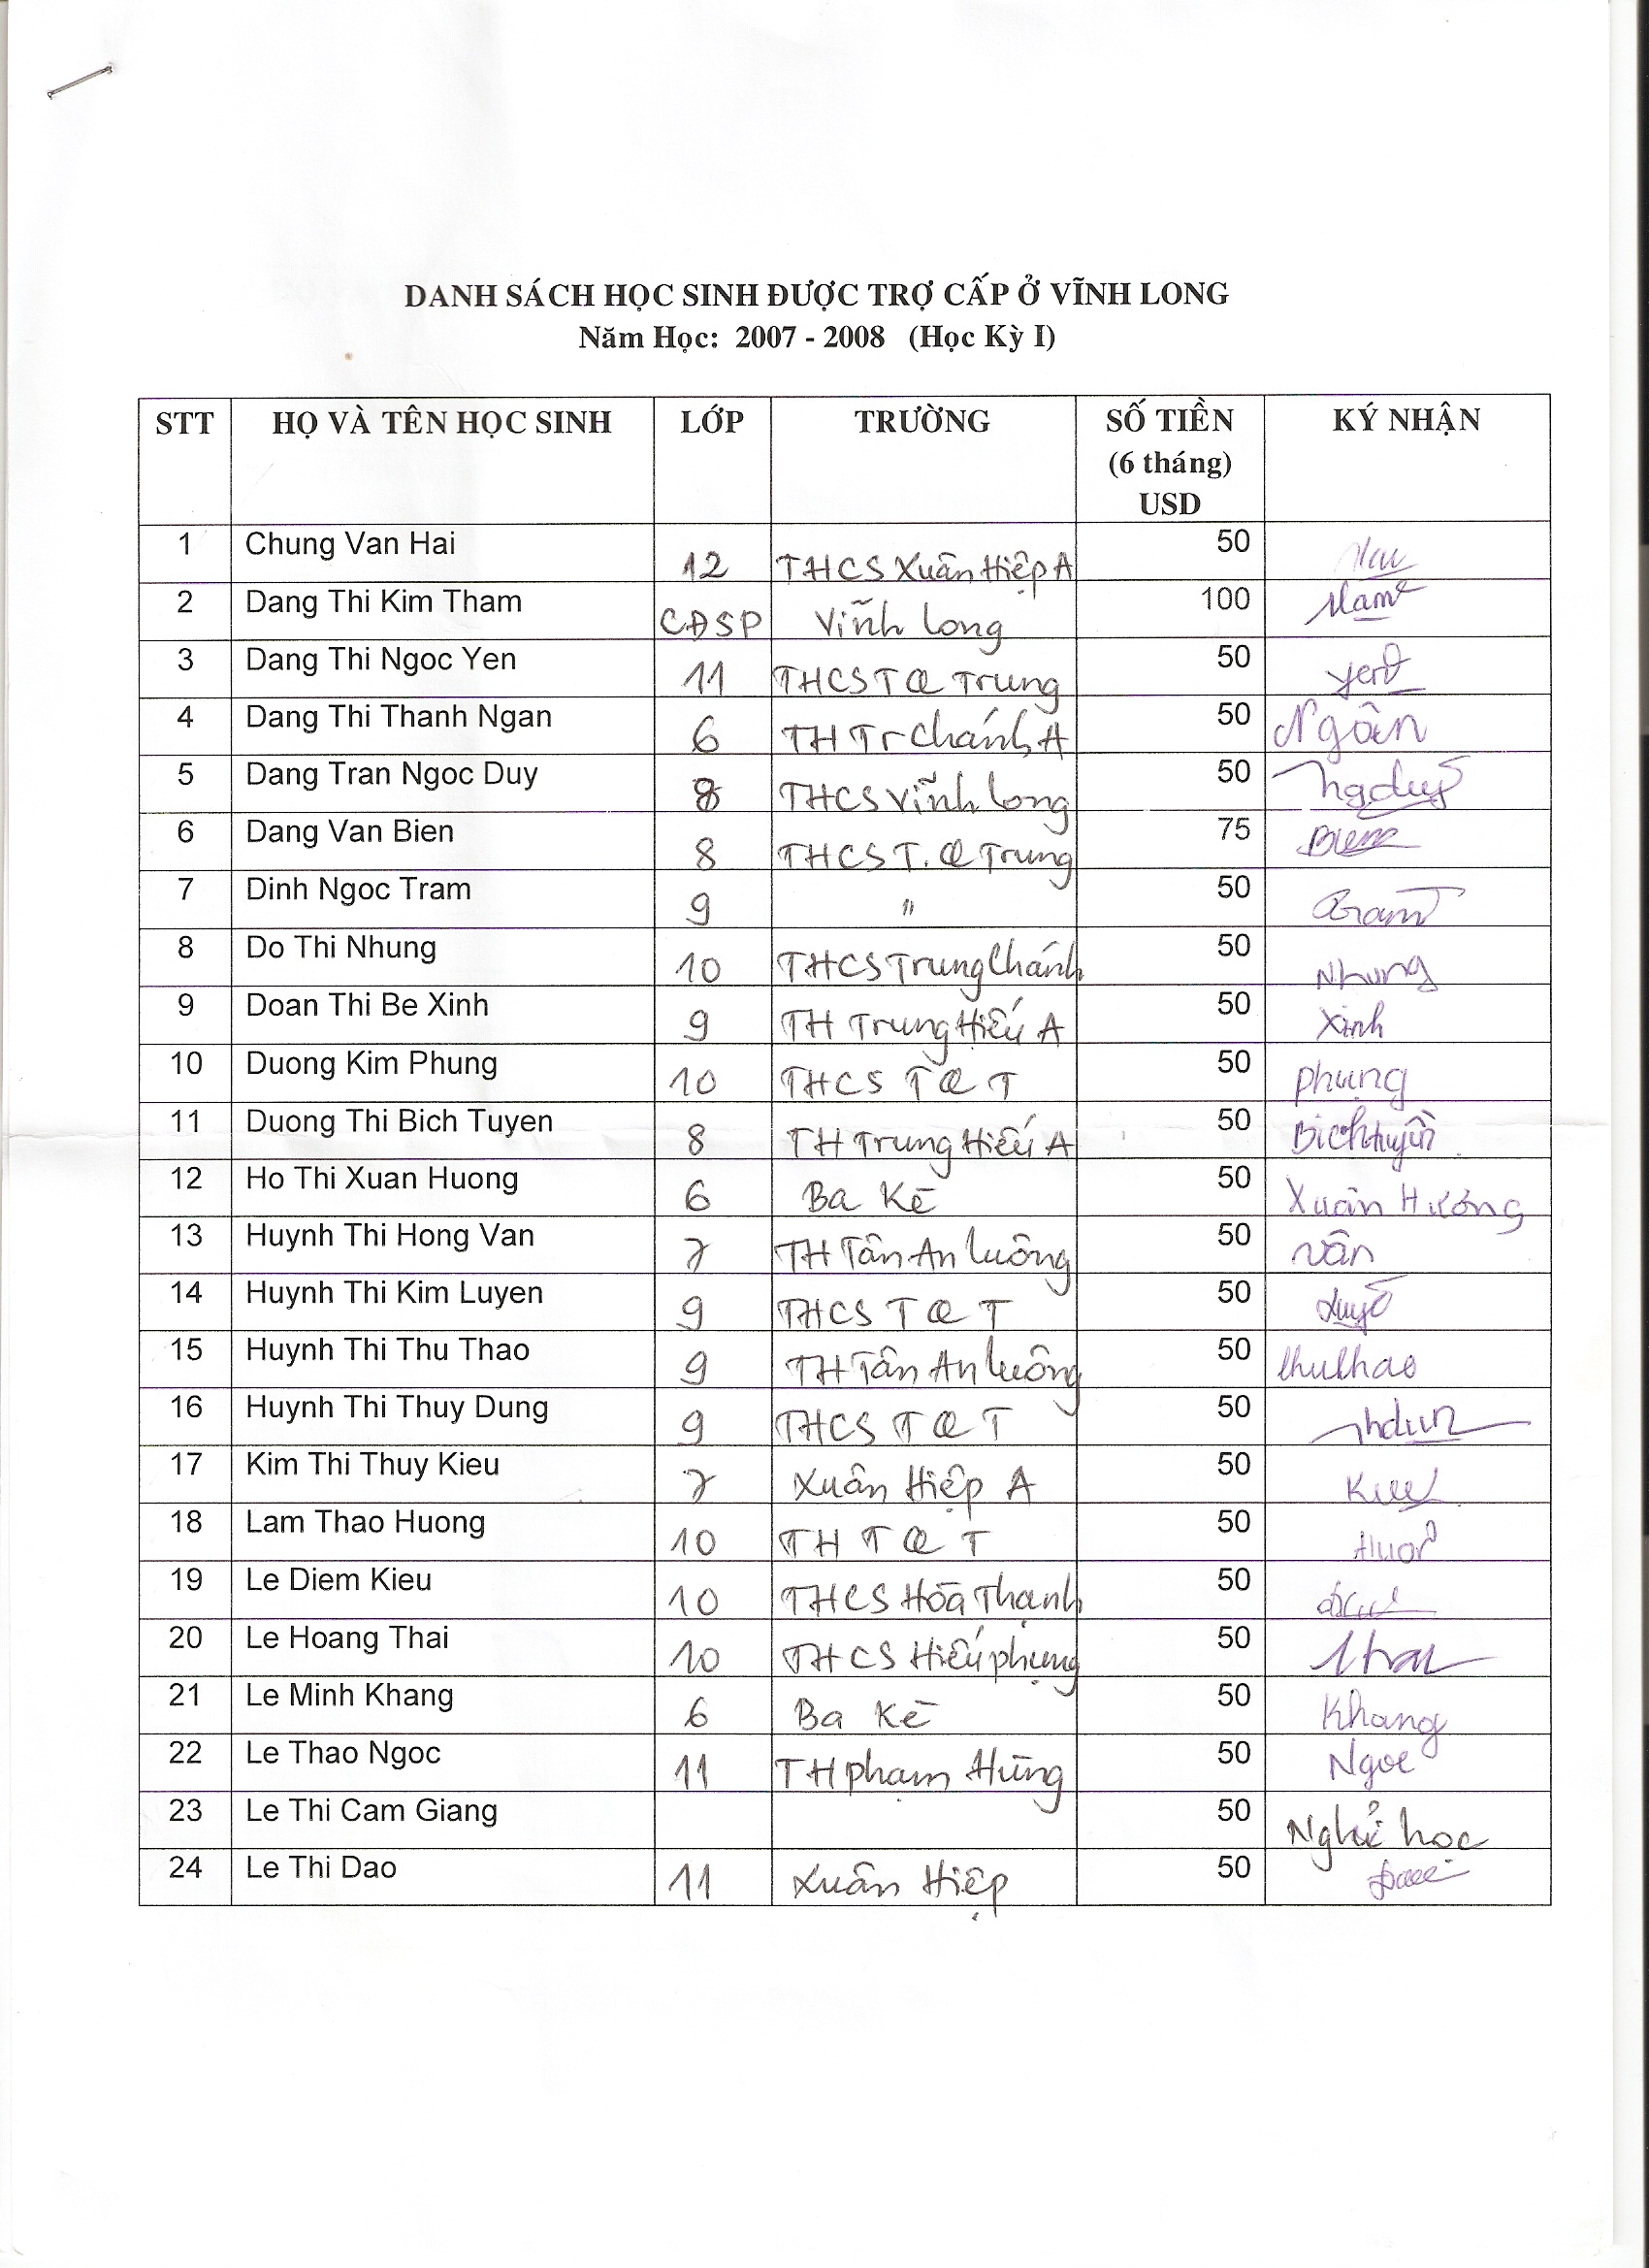 DANH SÁCH HỌC SINH ĐƯỢC TRỢ CẤP Ở VĨNH LONG
Năm Học: 2007 - 2008 (Học Kỳ I)
STT HỌ VÀ TÊN HỌC SINH LỚP TRƯỜNG SỐ TIỀN (6 tháng) USD KÝ NHẬN
1 Chung Van Hai 12 THCS Xuân Hiệp A 50
2 Dang Thi Kim Tham CĐSP Vĩnh Long 100
3 Dang Thi Ngoc Yen 11 THCS T Q Trung 50
4 Dang Thi Thanh Ngan 6 TH Tr Chánh A 50 Ngân
5 Dang Tran Ngoc Duy 8 THCS Vĩnh Long 50 ngduy
6 Dang Van Bien 8 THCS T. Q Trung 75
7 Dinh Ngoc Tram 9 " 50
8 Do Thi Nhung 10 THCS Trung Chánh 50 Nhung
9 Doan Thi Be Xinh 9 TH Trung Hiếu A 50 Xinh
10 Duong Kim Phung 10 THCS T Q T 50 phụng
11 Duong Thi Bich Tuyen 8 TH Trung Hiếu A 50 Bích tuyền
12 Ho Thi Xuan Huong 6 Ba Kè 50 Xuân Hương
13 Huynh Thi Hong Van 7 TH Tân An Luông 50 Vân
14 Huynh Thi Kim Luyen 9 THCS T Q T 50
15 Huynh Thi Thu Thao 9 TH Tân An Luông 50 thuthao
16 Huynh Thi Thuy Dung 9 THCS T Q T 50
17 Kim Thi Thuy Kieu 7 Xuân Hiệp A 50
18 Lam Thao Huong 10 TH T Q T 50
19 Le Diem Kieu 10 THCS Hòa Thạnh 50
20 Le Hoang Thai 10 THCS Hiếu phụng 50 Thai
21 Le Minh Khang 6 Ba Kè 50 Khang
22 Le Thao Ngoc 11 TH phạm Hùng 50 Ngoc
23 Le Thi Cam Giang 50 Nghỉ học
24 Le Thi Dao 11 Xuân Hiệp 50